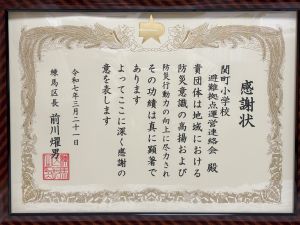 感謝状
関町小学校
避難拠点運営連絡会 殿
貴団体は地域における
防災意識の高揚および
防災行動力の向上に尽力され
その功績は真に顕著で
あります
よってここに深く感謝の
意を表します
令和七年三月二十一日
練馬区長 前川燿男